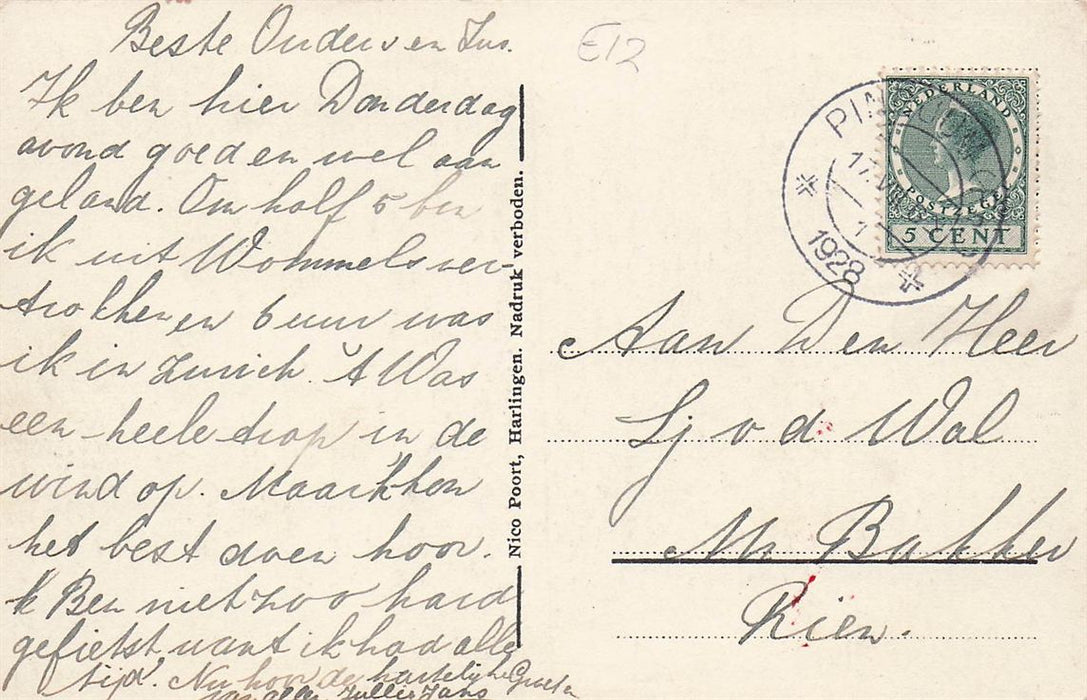 Beste Ouders en Zus.
Ik ben hier Donderdag
avond goed en wel aan
geland. Om half 5 ben
ik uit Wommels ver
trokken en 6 uur was
ik in Zurich. 't Was
een heele trap in de
wind op. Maar ik kon
het best doen hoor.
Ik Ben niet zoo hard
gefietst want ik had alle
tijd. Nu hoor de hartelijke Groeten
van allen Jullie
Nico Poort, Harlingen. Nadruk verboden.
E12
NEDERLAND
POSTZEGEL
5 CENT
1928
Aan Den Heer
Sj v d Wal
Mr Bakker
Rien.